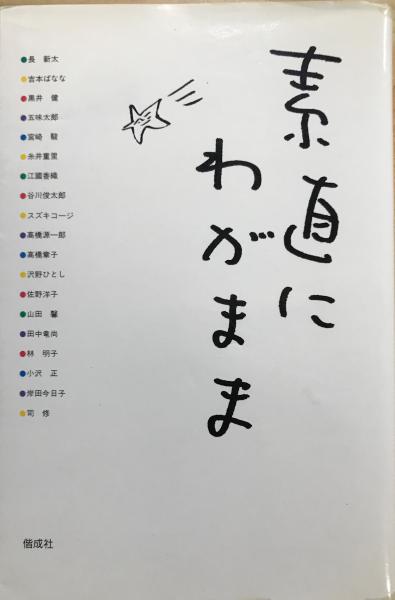 素直に
わがまま
長 新太
吉本ばなな
黒井 健
五味太郎
宮崎 駿
糸井重里
江國香織
谷川俊太郎
スズキコージ
高橋源一郎
高橋章子
沢野ひとし
佐野洋子
山田 馨
田中竜尚
林 明子
小沢 正
岸田今日子
司 修
偕成社